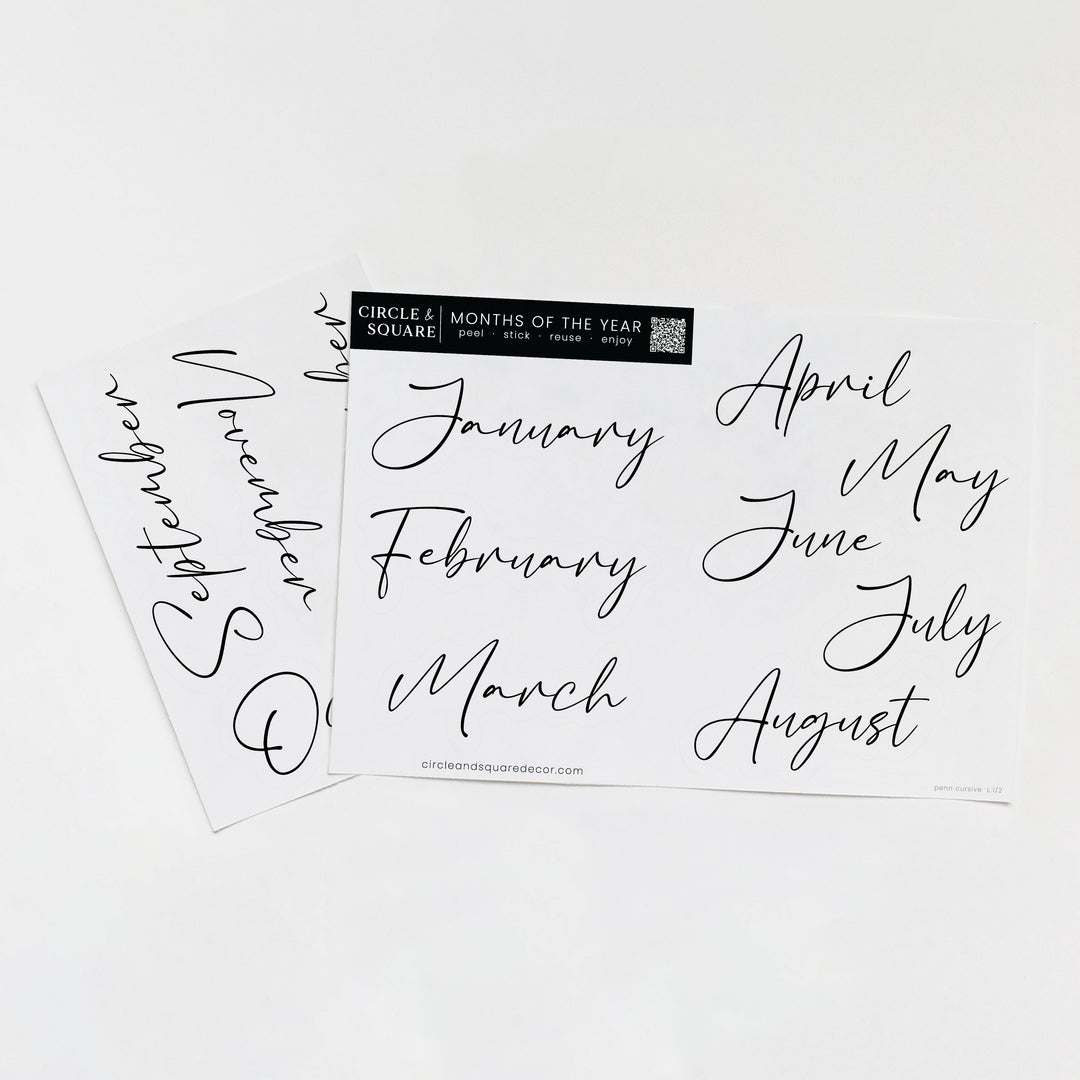 CIRCLE &
SQUARE
MONTHS OF THE YEAR
peel · stick · reuse · enjoy
January
February
March
April
May
June
July
August
circleandsquaredecor.com
penn cursive L 1/2
September
November
ber
O